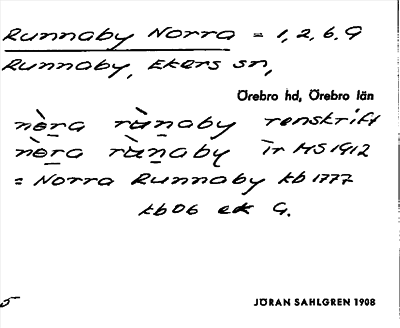 Runnaby Norra = 1, 2, 6, 9
Runnaby, Ekers sn,
Örebro hd, Örebro län
nòra rànaby renskrift
nòra rànaby ir HS 1912
= Norra Runnaby kb 1777
kb 06 ek G.
5
JÖRAN SAHLGREN 1908